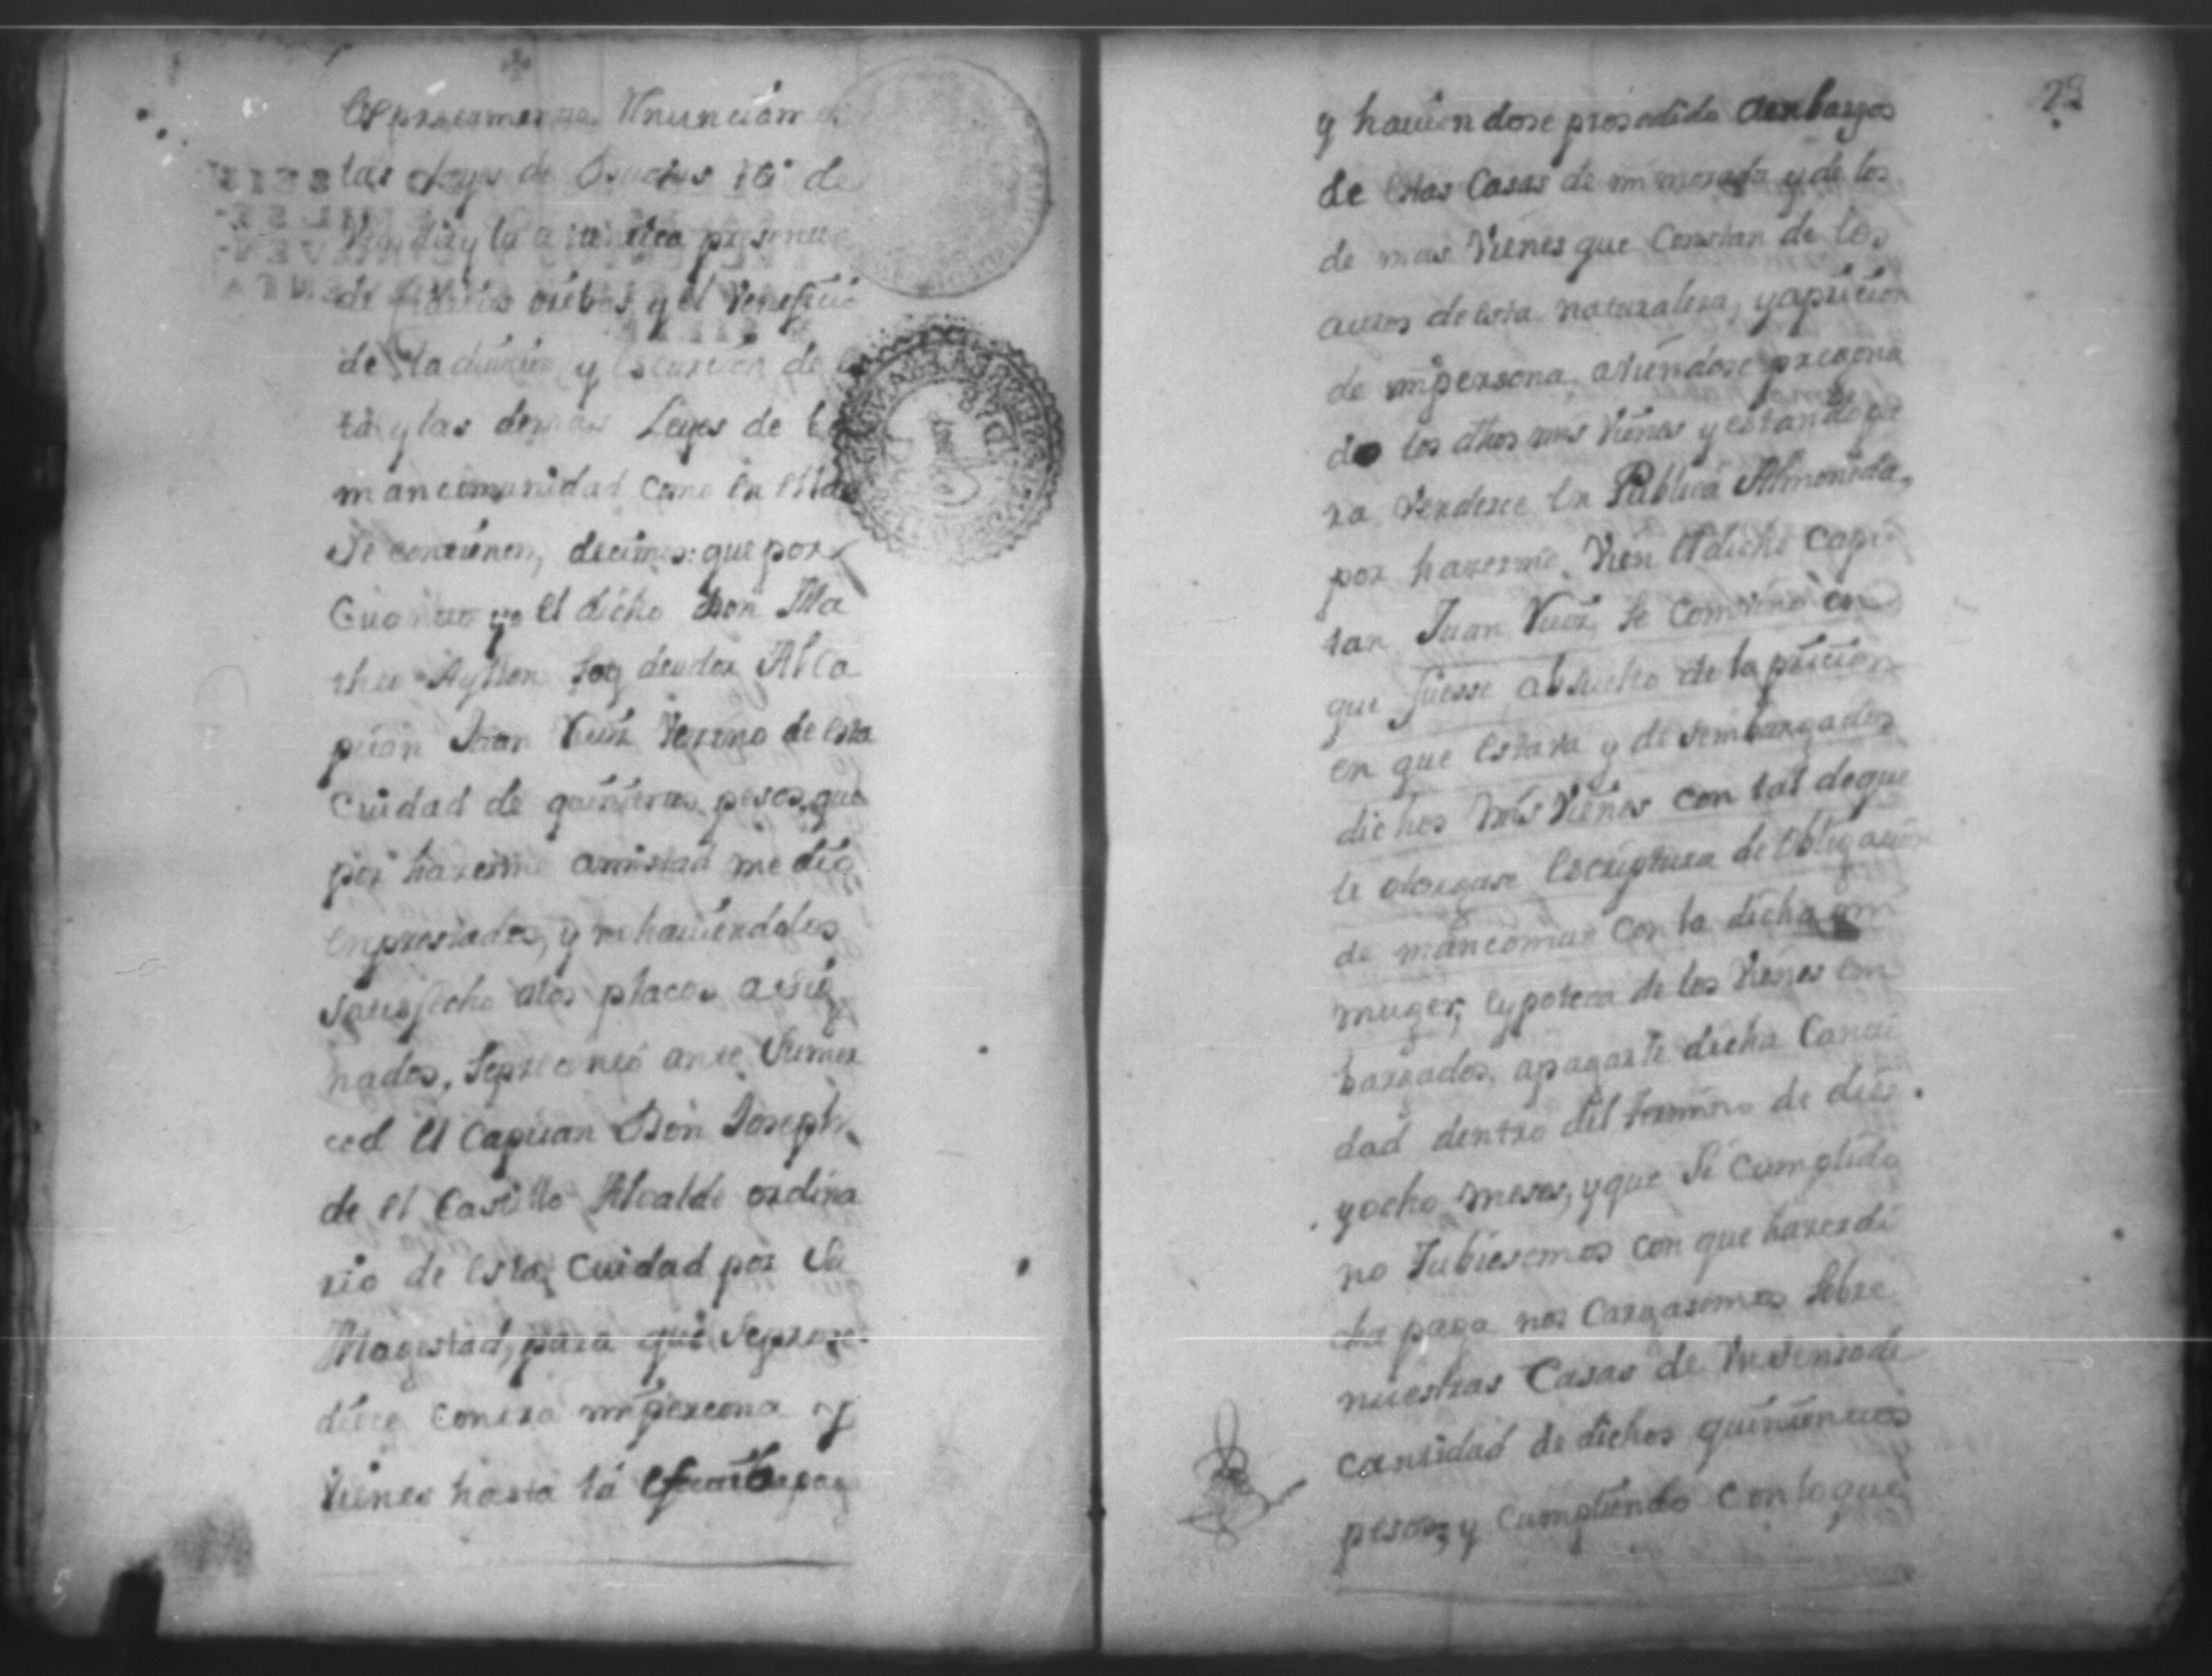 espresamente Renunciamos
las Leyes de Duobus rei de
vendi y la autentica presente
de fide iusoribus y el veneficio
de la divicion y escurcion de
ta y las demas Leyes de la
mancomunidad como en ellas
se contienen, decimos: que por
Quanto yo el dicho Don Ma
theo Ayllon soy deudor Al Ca
pitan Juan Ruiz Vezino de esta
Ciudad de quinientos pesos, que
por hazerme amistad me dio
enprestados, y no haviendolos
satisfecho a los placos asig
nados, se presento ante su mer
ced el Capitan Don Joseph
de el Castillo Alcalde ordina
rio de esta Cuidad por Su
Magestad, para que se proce
diece contra mi percona y
vienes hasta la efectiba paga
23
y haviendose prosedido a enbargos
de estas Casas de mi morada y de los
de mas vienes que constan de los
autos de esta naturalesa, y a pricion
de mi persona, aviendose pregona
do los dhos mis vienes y estando pa
ra venderce en Publica Almoneda,
por hazerme vien el dicho Capi
tan Juan Ruiz, se convino en
que fuesse absuelto de la pricion
en que estava y desembargados
dichos mis vienes con tal de que
le otorgase Escriptura de obligacion
de mancomun con la dicha mi
muger, y poteca de los vienes em
bargados, a pagarle dicha Canti
dad dentro del termino de dies
y ocho meses, y que si cumplido
no tubiesemos con que hazer di
cha paga nos Cargasemos sobre
nuestras Casas de un senso de
cantidad de dichos quinientos
pesos, y cumpliendo con lo que